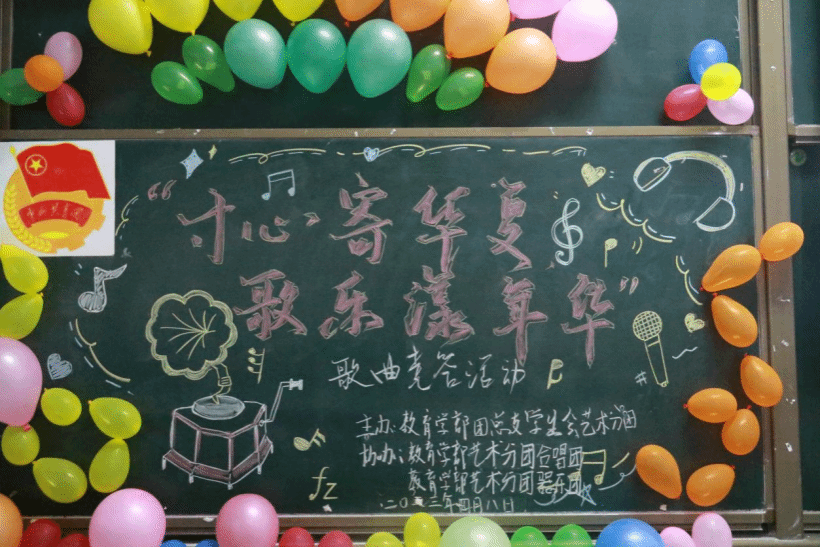 “寸心”寄华夏
歌乐漾年华”
歌曲竞答活动
主办:教育学部团总支学生会艺术分团
协办:教育学部艺术分团合唱团
教育学部艺术分团器乐团
四月八日
fz